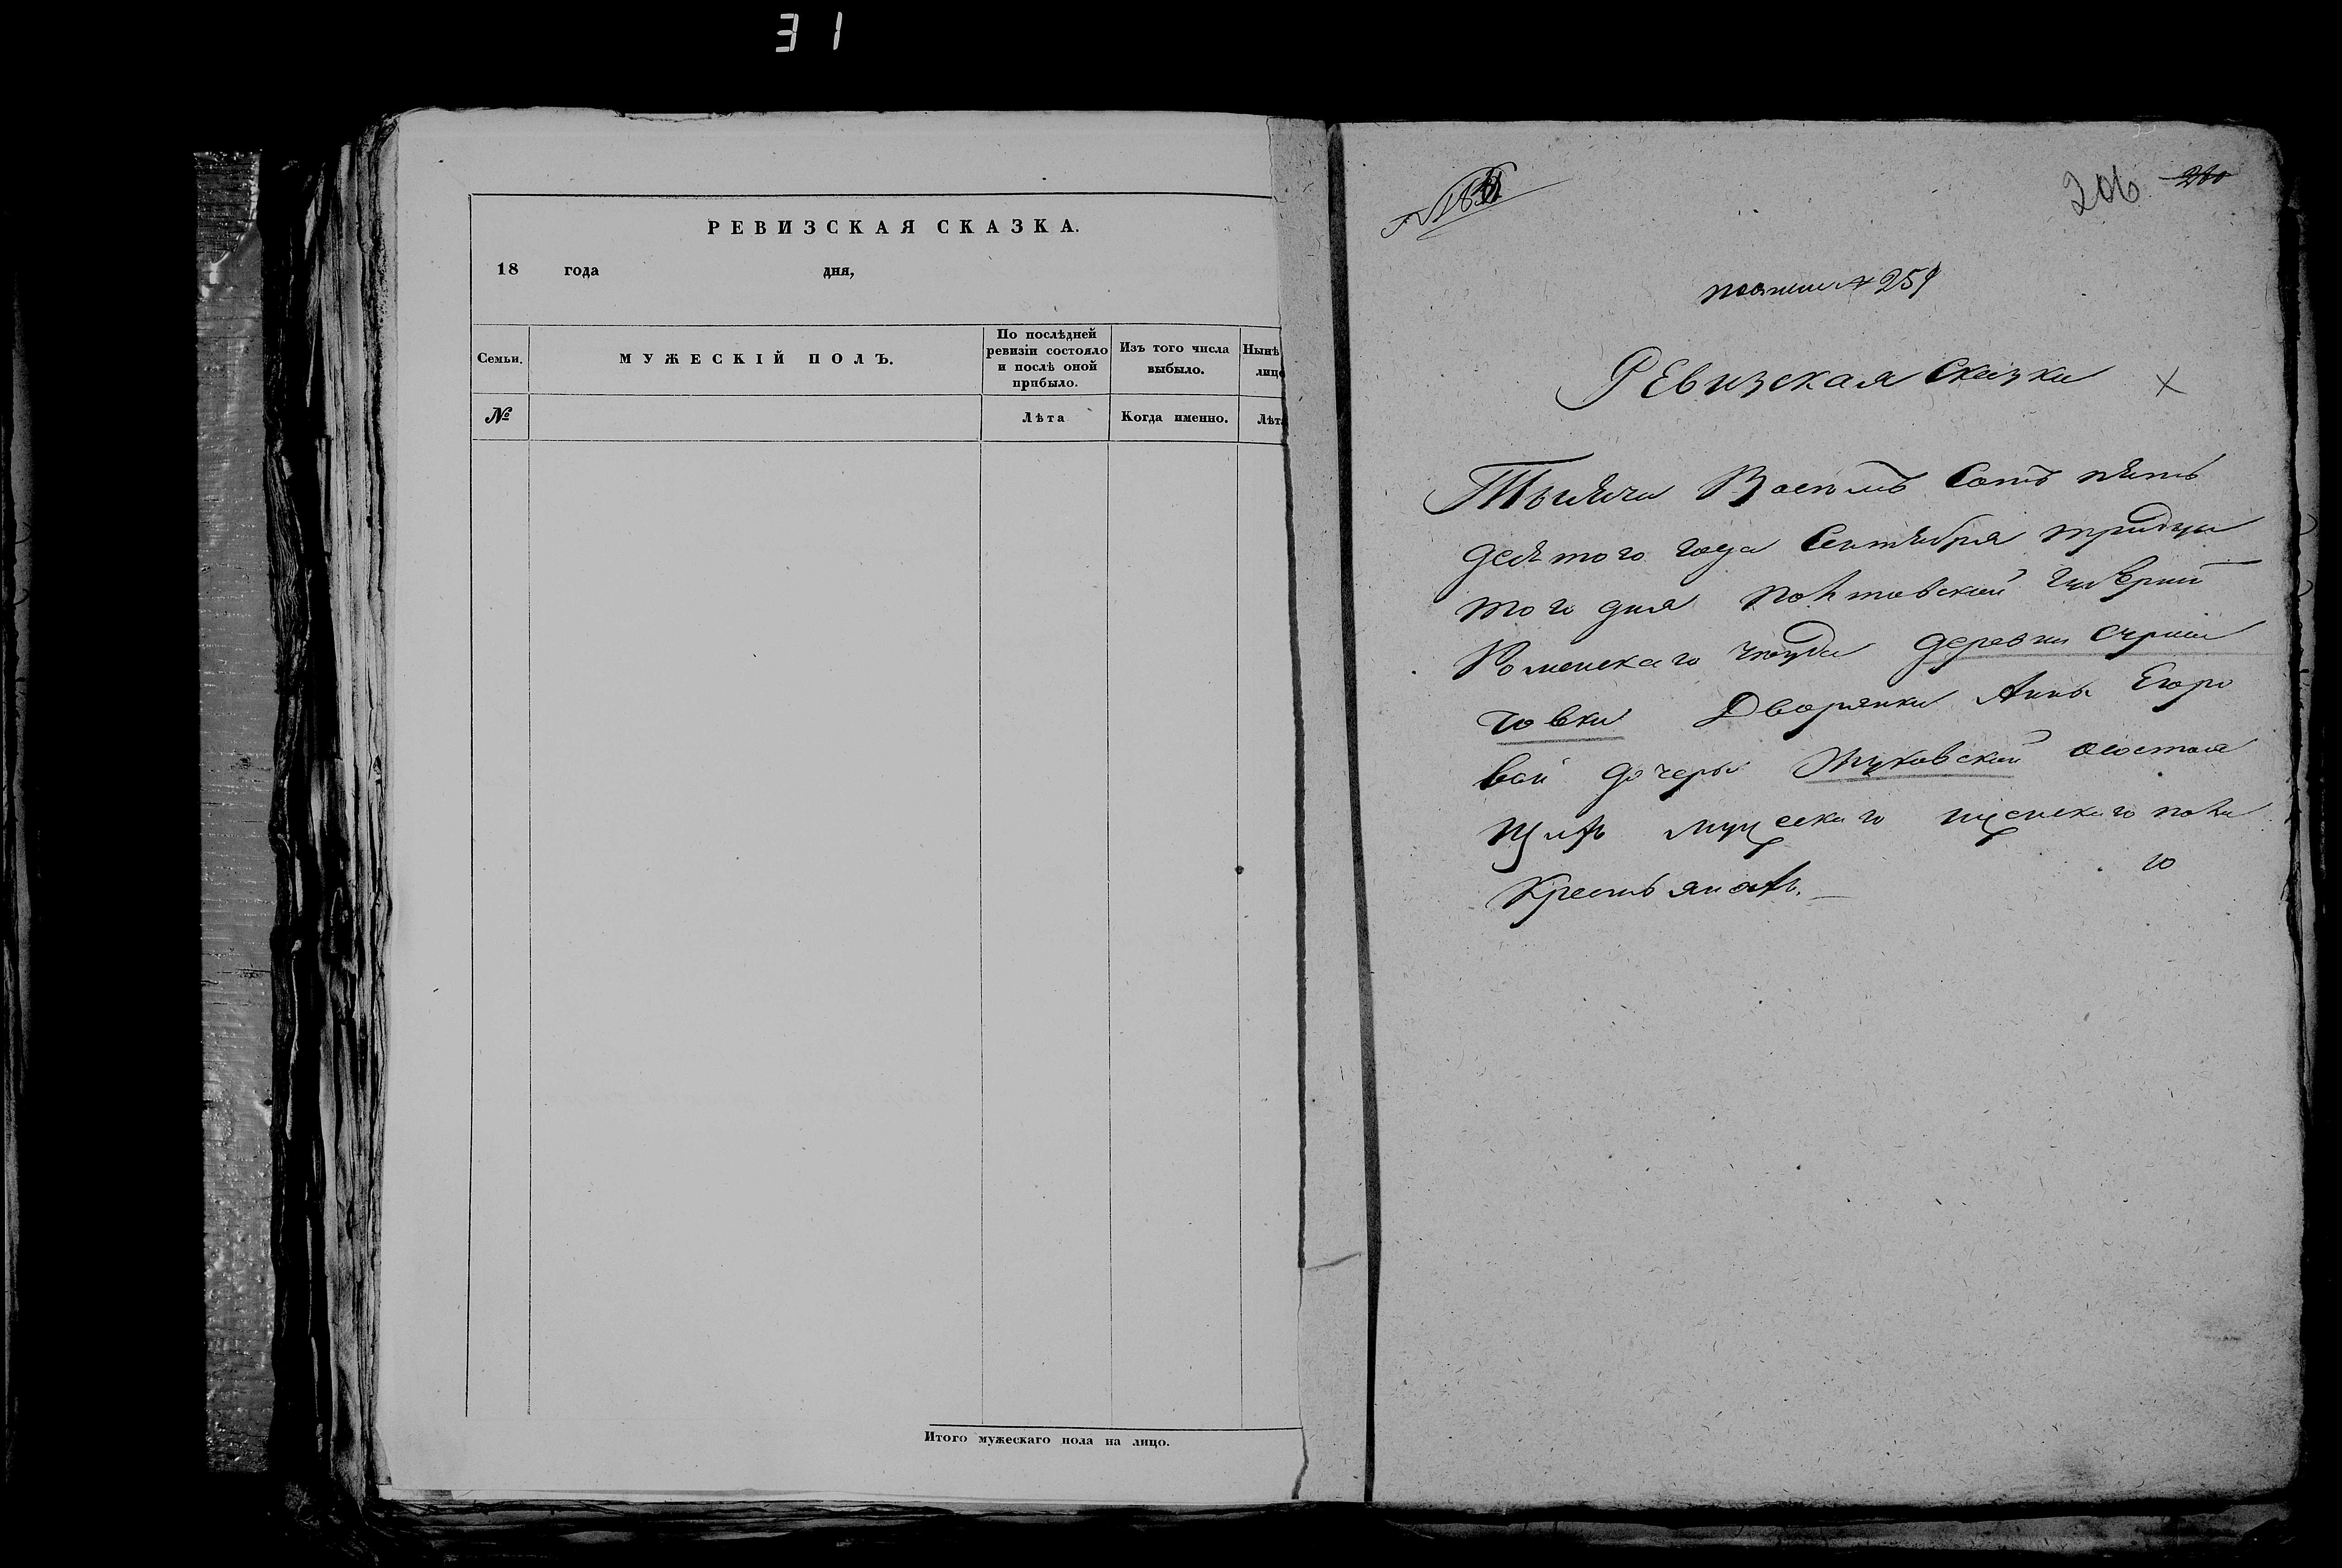 31
РЕВИЗСКАЯ СКАЗКА.
18 года дня,
Семьи.
МУЖЕСКІЙ ПОЛЪ.
По послѣдней
ревизіи состояло
и послѣ оной
прибыло.
Изъ того числа
выбыло.
Нынѣ
лицо
№
Лѣта
Когда именно.
Лѣта
Итого мужескаго пола на лицо.
206
№ 259
Ревизская Сказка
Тысяча Восемъ Сотъ пять
десятого года Сентября тридца
того дня Полтавской Губерніи
Роменскаго уезда деревни
товки Дворянки Анны Егоро
вой дочери Жуковской о состоя
щихъ мужескаго женскаго пола
Крестьянахъ.